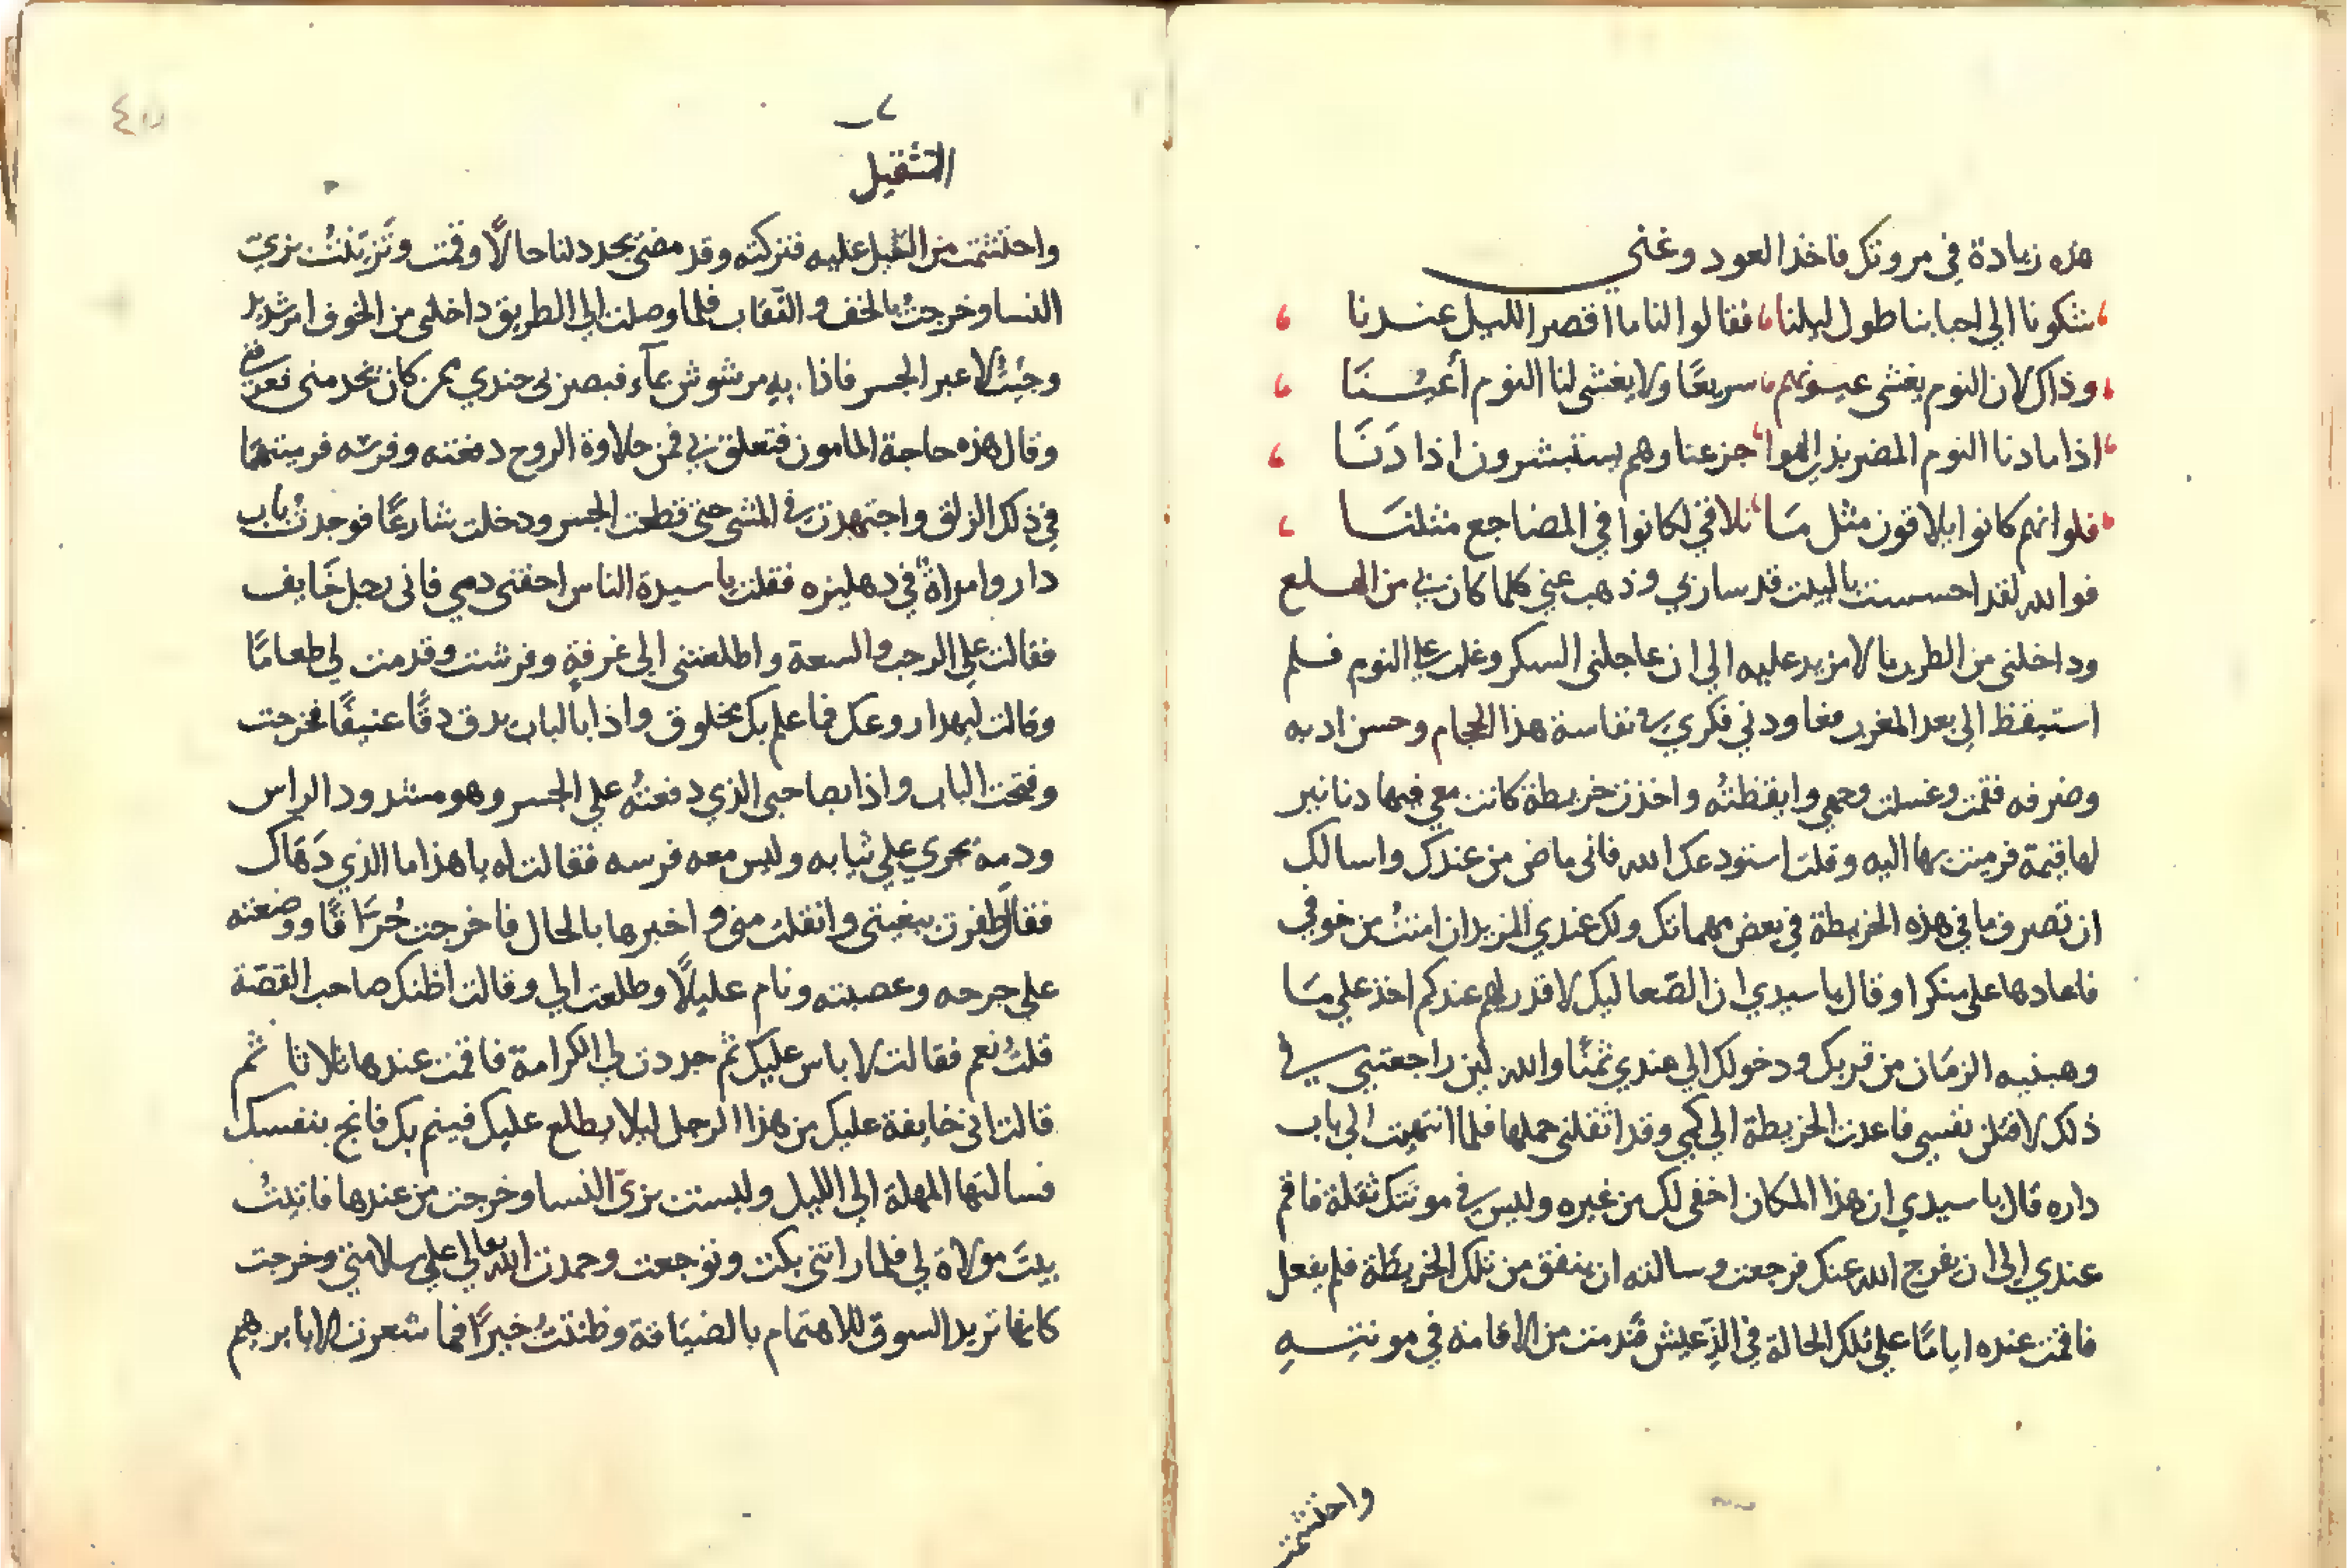 هذه زيادة في مروتك فاخذ العود وغني
شكونا الي احبابنا طول ليلنا فقالوا لنا ما اقصر الليل عندنا
وذاك لان النوم يغشى عيونهم سريعًا ولا يغشى لنا النوم أعيُنَا
اذا ما دنا النوم المضر بذي الهوا جزعنا وهم يستبشرون اذا دَنَا
فلو انهم كانوا يلاقون مثل مَا نلاقي لكانوا في المضاجع مثلنَا
فوالله لقد احسست بالبيت قد سار بي وذهب عني كلما كان بي من الهلع
وداخلني من الطرب ما لا مزيد عليه الي ان عاجلني السكر وغلب علي النوم فلم
استيقظ الي بعد المغرب فعاودني فكري في نفاسة هذا الحجام وحسن ادبه
وضرفه فقمت وغسلت وجهي وايقظتُه واخذت خريطة كانت معي فيها دنانير
لها قيمة فرميت بها اليه وقلت استودعك الله فاني ماض من عندك واسالك
ان تصرف ما في هذه الخريطة في بعض مهماتك ولك عندي المزيد ان امنتُ من خوفي
فاعادها علي منكرا وقال يا سيدي ان الصّعاليك لا قدر لهم عندكم اخذ علي مَا
وهبنيه الزمَان من قربك ودخولك الي عندي ثمنًا والله لين راجعتني في
ذلك لاقتلن نفسي فاعدت الخريطة الي كمي وقد اثقلني حملها فلما انتهيت الي باب
داره قال يا سيدي ان هذا المكان اخفى لك من غيره وليس في مونتك ثقلة فاقم
عندي الى ان يفرج الله عنك فرجعت وسالته ان ينفق من تلك الخريطَة فلم يفعل
فاقمت عنده ايامًا علي تلك الحالة في الذ عيش فتدمت من الاقامة في مونتِهِ
واحتشمت
التثقيل
واحتشمت من التثقيل عليه فتركته وقد مضى يجدد لنا حالًا وقمت وتَزيّنتُ بزيّ
النسا وخرجتُ بالخف والنّقاب فلما وصلت الي الطريق داخلني من الخوف امر شديد
وجيتُ لاعبر الجسر فاذا به مرشوش بمآء فبصر بي جندي ممن كان يخدمني فعرفني
وقال هذه حاجة المامون فتعلق بي فمن حلاوة الروح دفعته وفرسه فرميتهمَا
في ذلك الزلق واجتهدت في المشي حتي قطعت الجسر ودخلت شارعًا فوجدتُ باب
دار وامراة في دهليزه فقلت يا سيدة الناس احقني دمي فاني رجل خَايف
فقالت علي الرحب والسعة واطلعتني الي غرفةٍ وفرشت وقدمت لي طعامًا
وقالت ليهدا روعك فما علم بك مخلوق واذا بالباب يدق دقًا عنيفًا فخرجت
وفتحت الباب واذا بصاحبي الذي دفعتُه علي الجسر وهو مشدود الراس
ودمه يجري علي ثيابه وليس معه فرسه فقالت له يا هذا ما الذي دَهَاك
فقال ظفرت ببغيتي وانفلت مني واخبرها بالحال فاخرجت حُرَاقًا ووضعته
علي جرحه وعصبته ونام عليلًا وطلعت الي وقالت اظنك صاحب القصّة
قلتُ نعم فقالت لا باس عليك ثم جددت لي الكرامة فاقمت عندها ثلاثا ثم
قالت اني خايفة عليك من هذا الرجل ليلا يطلع عليك فينم بك فانج بنفسك
فسالتها المهلة الي الليل ولبست بزيّ النسا وخرجت من عندها فاتيتُ
بيتَ مولاة لي فلما راتني بكت وتوجعت وحمدت الله تعالي علي سلامتي وخرجت
كانها تريد السوق للاهتمام بالضيَافة وظننتُ خيرًا فما شعرت الا بابرهيم